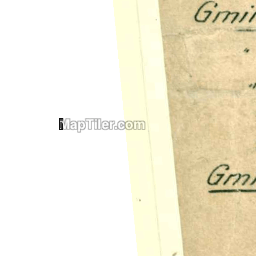 Gmi
"
"
MapTiler.com
Gmi